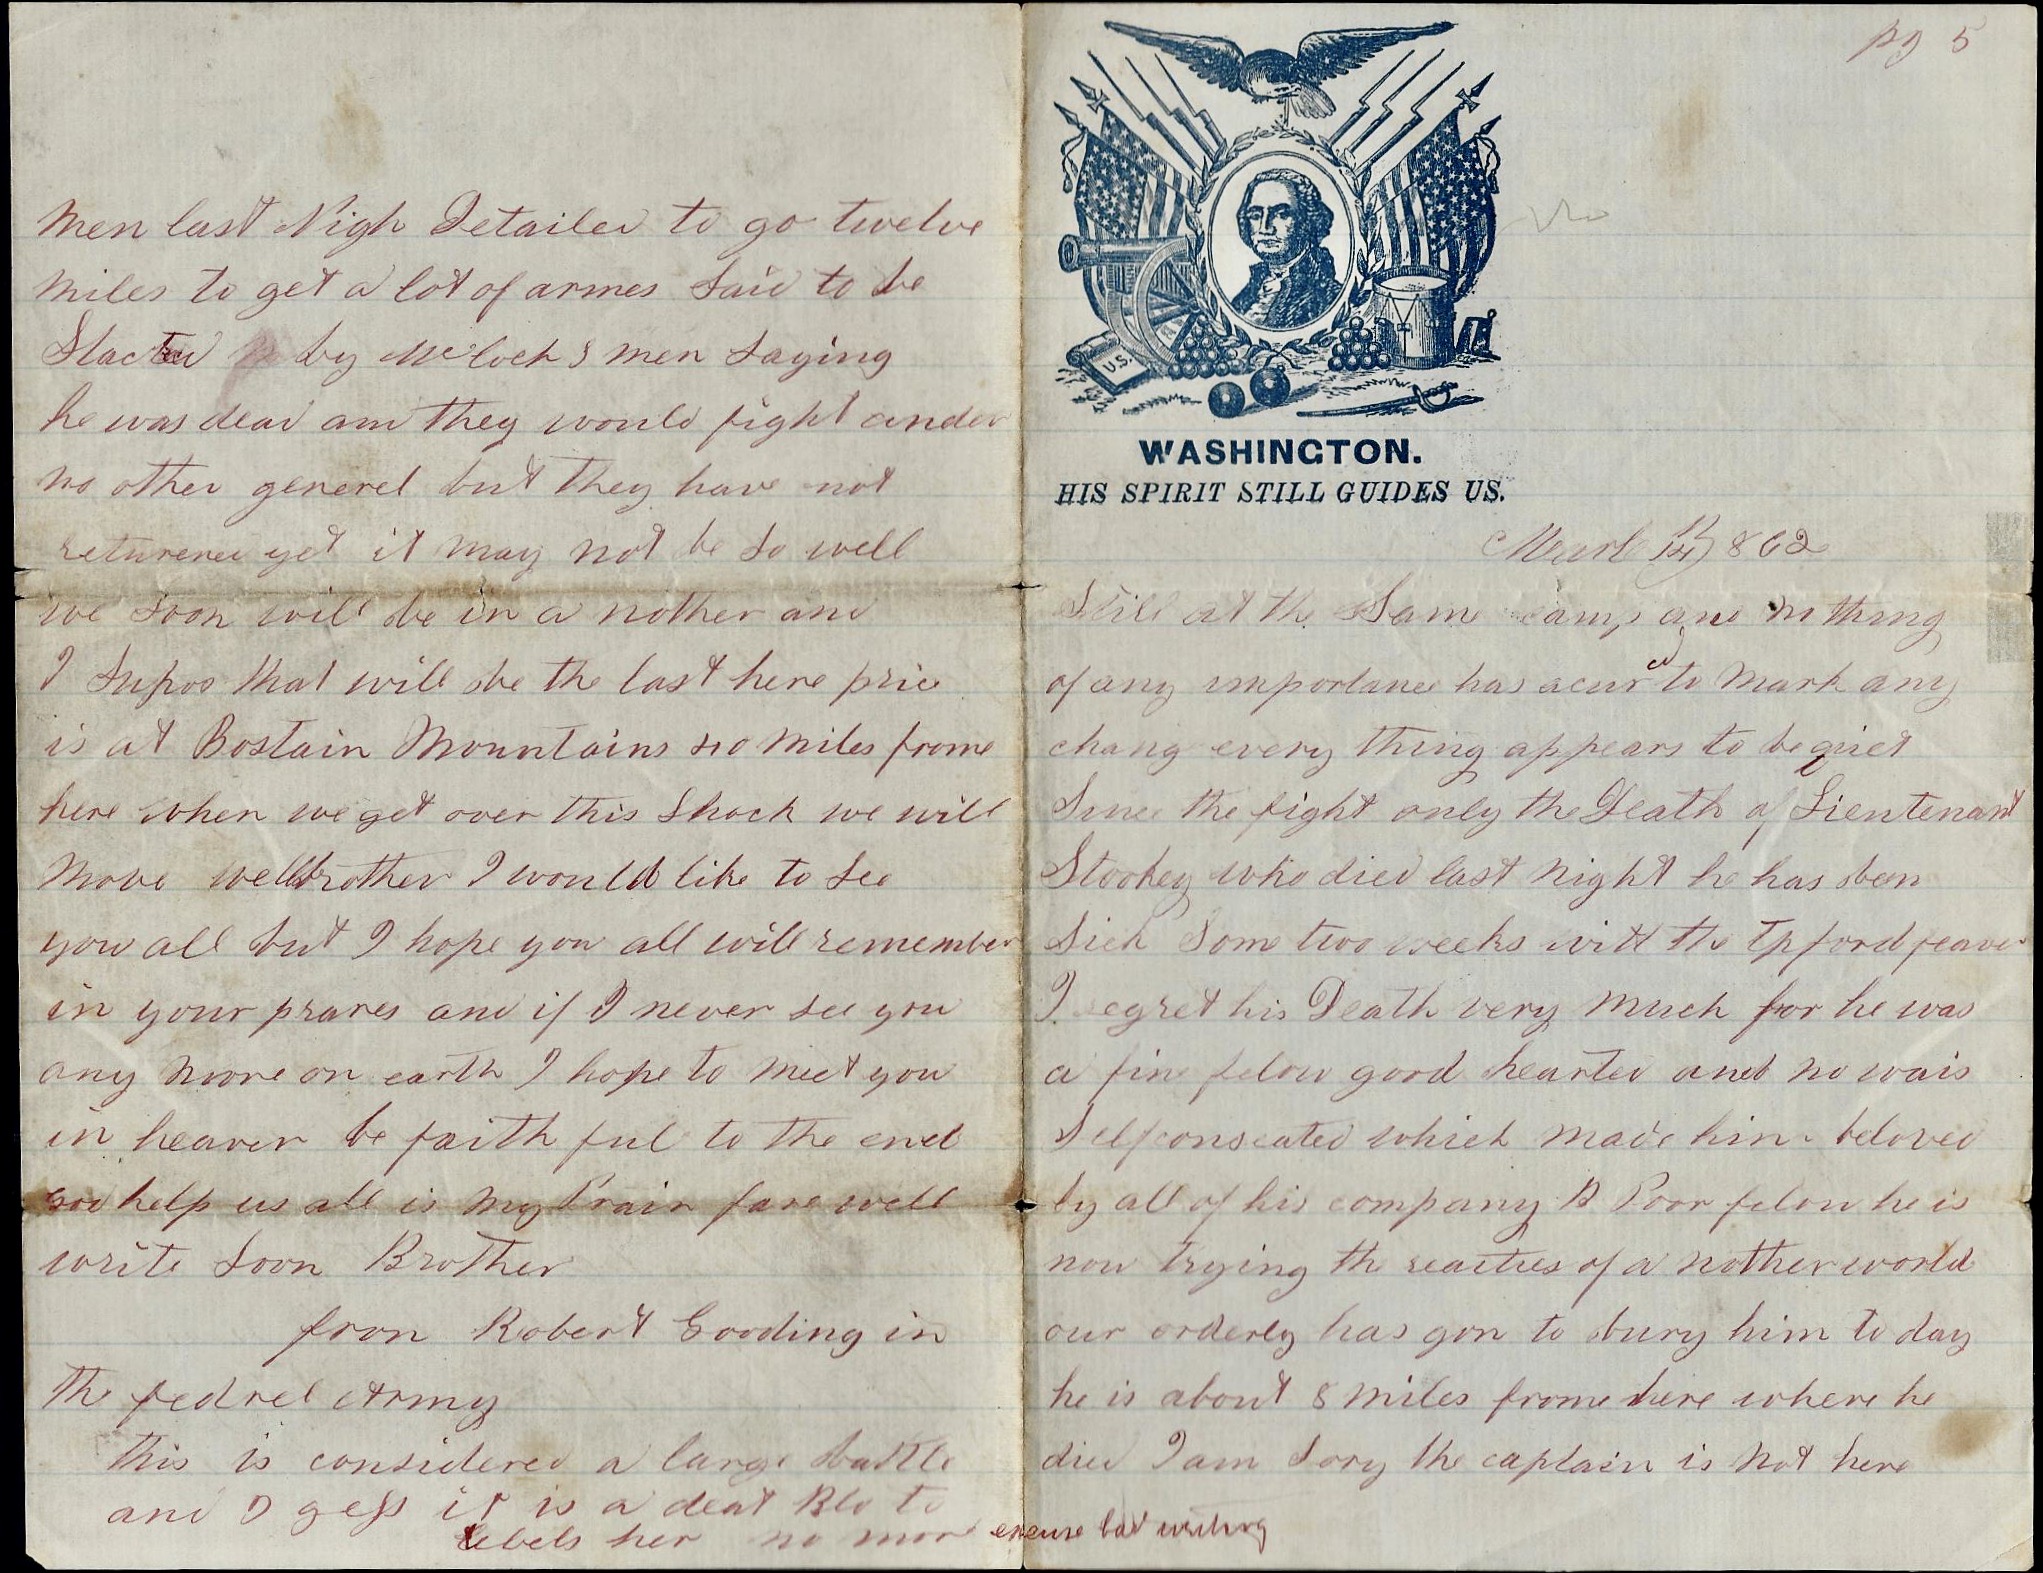 men last Nigh Detailed to go twelve
miles to get a lot of armes Said to be
Stacted by McLock s men Saying
he was dead and they would fight under
no other generel but they have not
returened yet it may not be So well
we Soon will be in a nother and
I Supos that will be the last here price
is at Bostain Mountains 20 miles frome
here when we get over this Shock we will
move well brother I would like to See
you all but I hope you all will remember
in your prares and if I never See you
any more on earth I hope to meet you
in heaven be faith ful to the end
God help us all is my Prair fare well
write Soon Brother
from Robert Gooding in
the fedrel Army
this is considered a large battle
and I gess it is a deat Blo to
rebels her no mor excuse bad writing
pg 5
U.S.
WASHINGTON.
HIS SPIRIT STILL GUIDES US.
March 1862
Still at the Same camp and no thing
of any importance has acured to mark any
chang every thing appears to be quiet
Since the fight only the Death of Lieutenant
Stookey who died last night he has ben
Sick Some two weeks witt the Tpford feaver
I regret his Death very much for he was
a fine felow good hearted and no wais
Selfconseated which made him beloved
by all of his company B Poor felow he is
now trying the realties of a nother world
our orderly has gon to bury him to day
he is about 8 miles frome here where he
died I am Sory the captain is not here